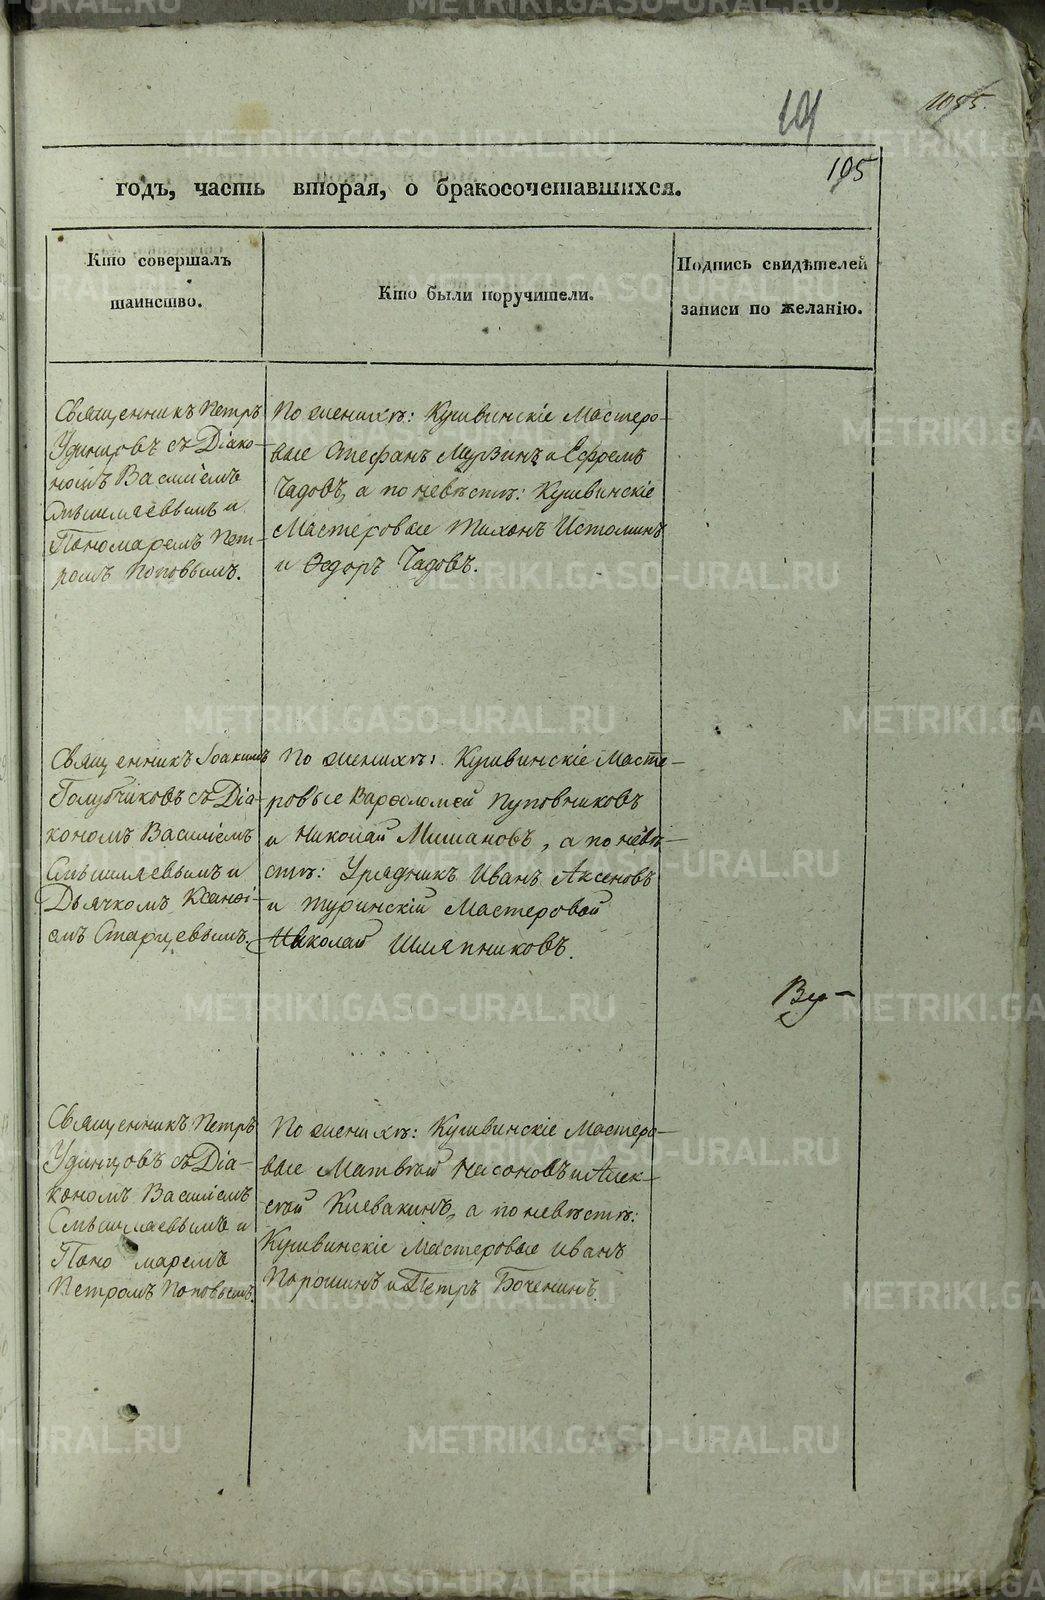 101
1055.
105
годъ, часть вторая, о бракосочетавшихся.
Кто совершалъ
таинство.
Кто были поручители.
Подпись свидѣтелей
записи по желанію.
Священникъ Петръ
Удинцовъ съ Діако-
номъ Василіемъ
Смышляевымъ и
Пономаремъ Пет-
ромъ Поповымъ.
По женихѣ: Кушвинскіе Мастеро-
вые Стефанъ Мурзинъ и Ефремъ
Чадовъ, а по невѣстѣ: Кушвинскіе
Мастеровые Тихонъ Истоминъ
и Ѳедоръ Чадовъ.
Священникъ Іоакимъ
Голубчиковъ съ Діа-
кономъ Василіемъ
Смышляевымъ и
Дьячкомъ Ксенофі-
амъ Старцевымъ.
По женихѣ: Кушвинскіе Масте-
ровые Варѳоломей Пуповниковъ
и Николай Мишановъ, а по невѣ-
стѣ: Урядникъ Иванъ Аксеновъ
и Туринскій Мастеровой
Николай Шляпниковъ.
Вер-
Священникъ Петръ
Удинцовъ съ Діа-
кономъ Василіемъ
Смышляевымъ и
Поно маремъ
Петромъ Поповымъ.
По женихѣ: Кушвинскіе Мастеро-
вые Матвѣй Насоновъ и Алек-
сѣй Кивакинъ, а по невѣстѣ:
Кушвинскіе Мастеровые Иванъ
Порошинъ и Петръ Боченинъ.
METRIKI.GASO-URAL.RU